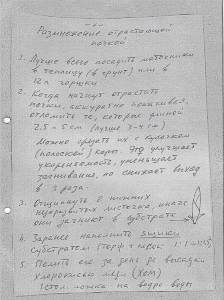 Размножение отрастающей
почкой
1. Лучше всего посадить маточники
в теплицу (в грунт) или в
12 л горшки
2. Когда начнут отрастать
почки, аккуратно покачивая,
отломить те, которые длиной
2,5 - 5 см (лучше 3-4 см)
Можно срезать их с кусочком
(полоской) коры. Это улучшает
укореняемость, уменьшает
загнивание, но снижает выход
в 2 раза
3. Отщипнуть 2 нижних
листочка, иначе
они загниют в субстрате
4. Заранее наполнить ящики
субстратом (торф + песок 1:1
5. Полить его за день до высадки
хлорокисью меди (Хом)
1 стол. ложка на ведро воды